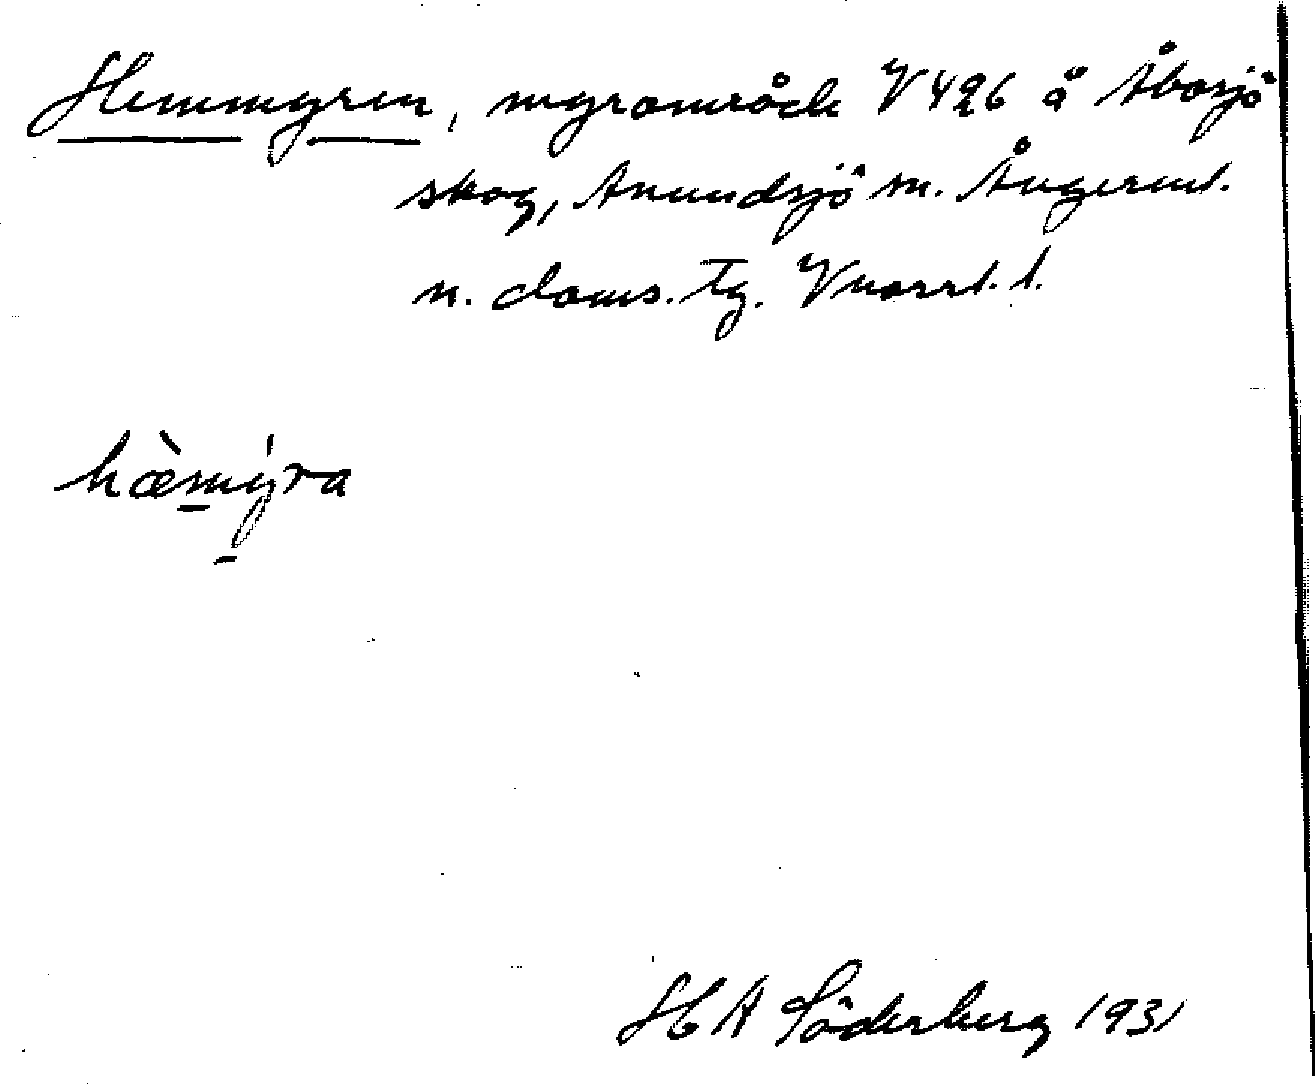 Hemmyren, myrområde V 426 å Åbosjö
skog, Anundsjö sn. Ångerml.
n. doms. tg. Vnorrl. l.
hæ̀mýra
H A Söderberg 1931